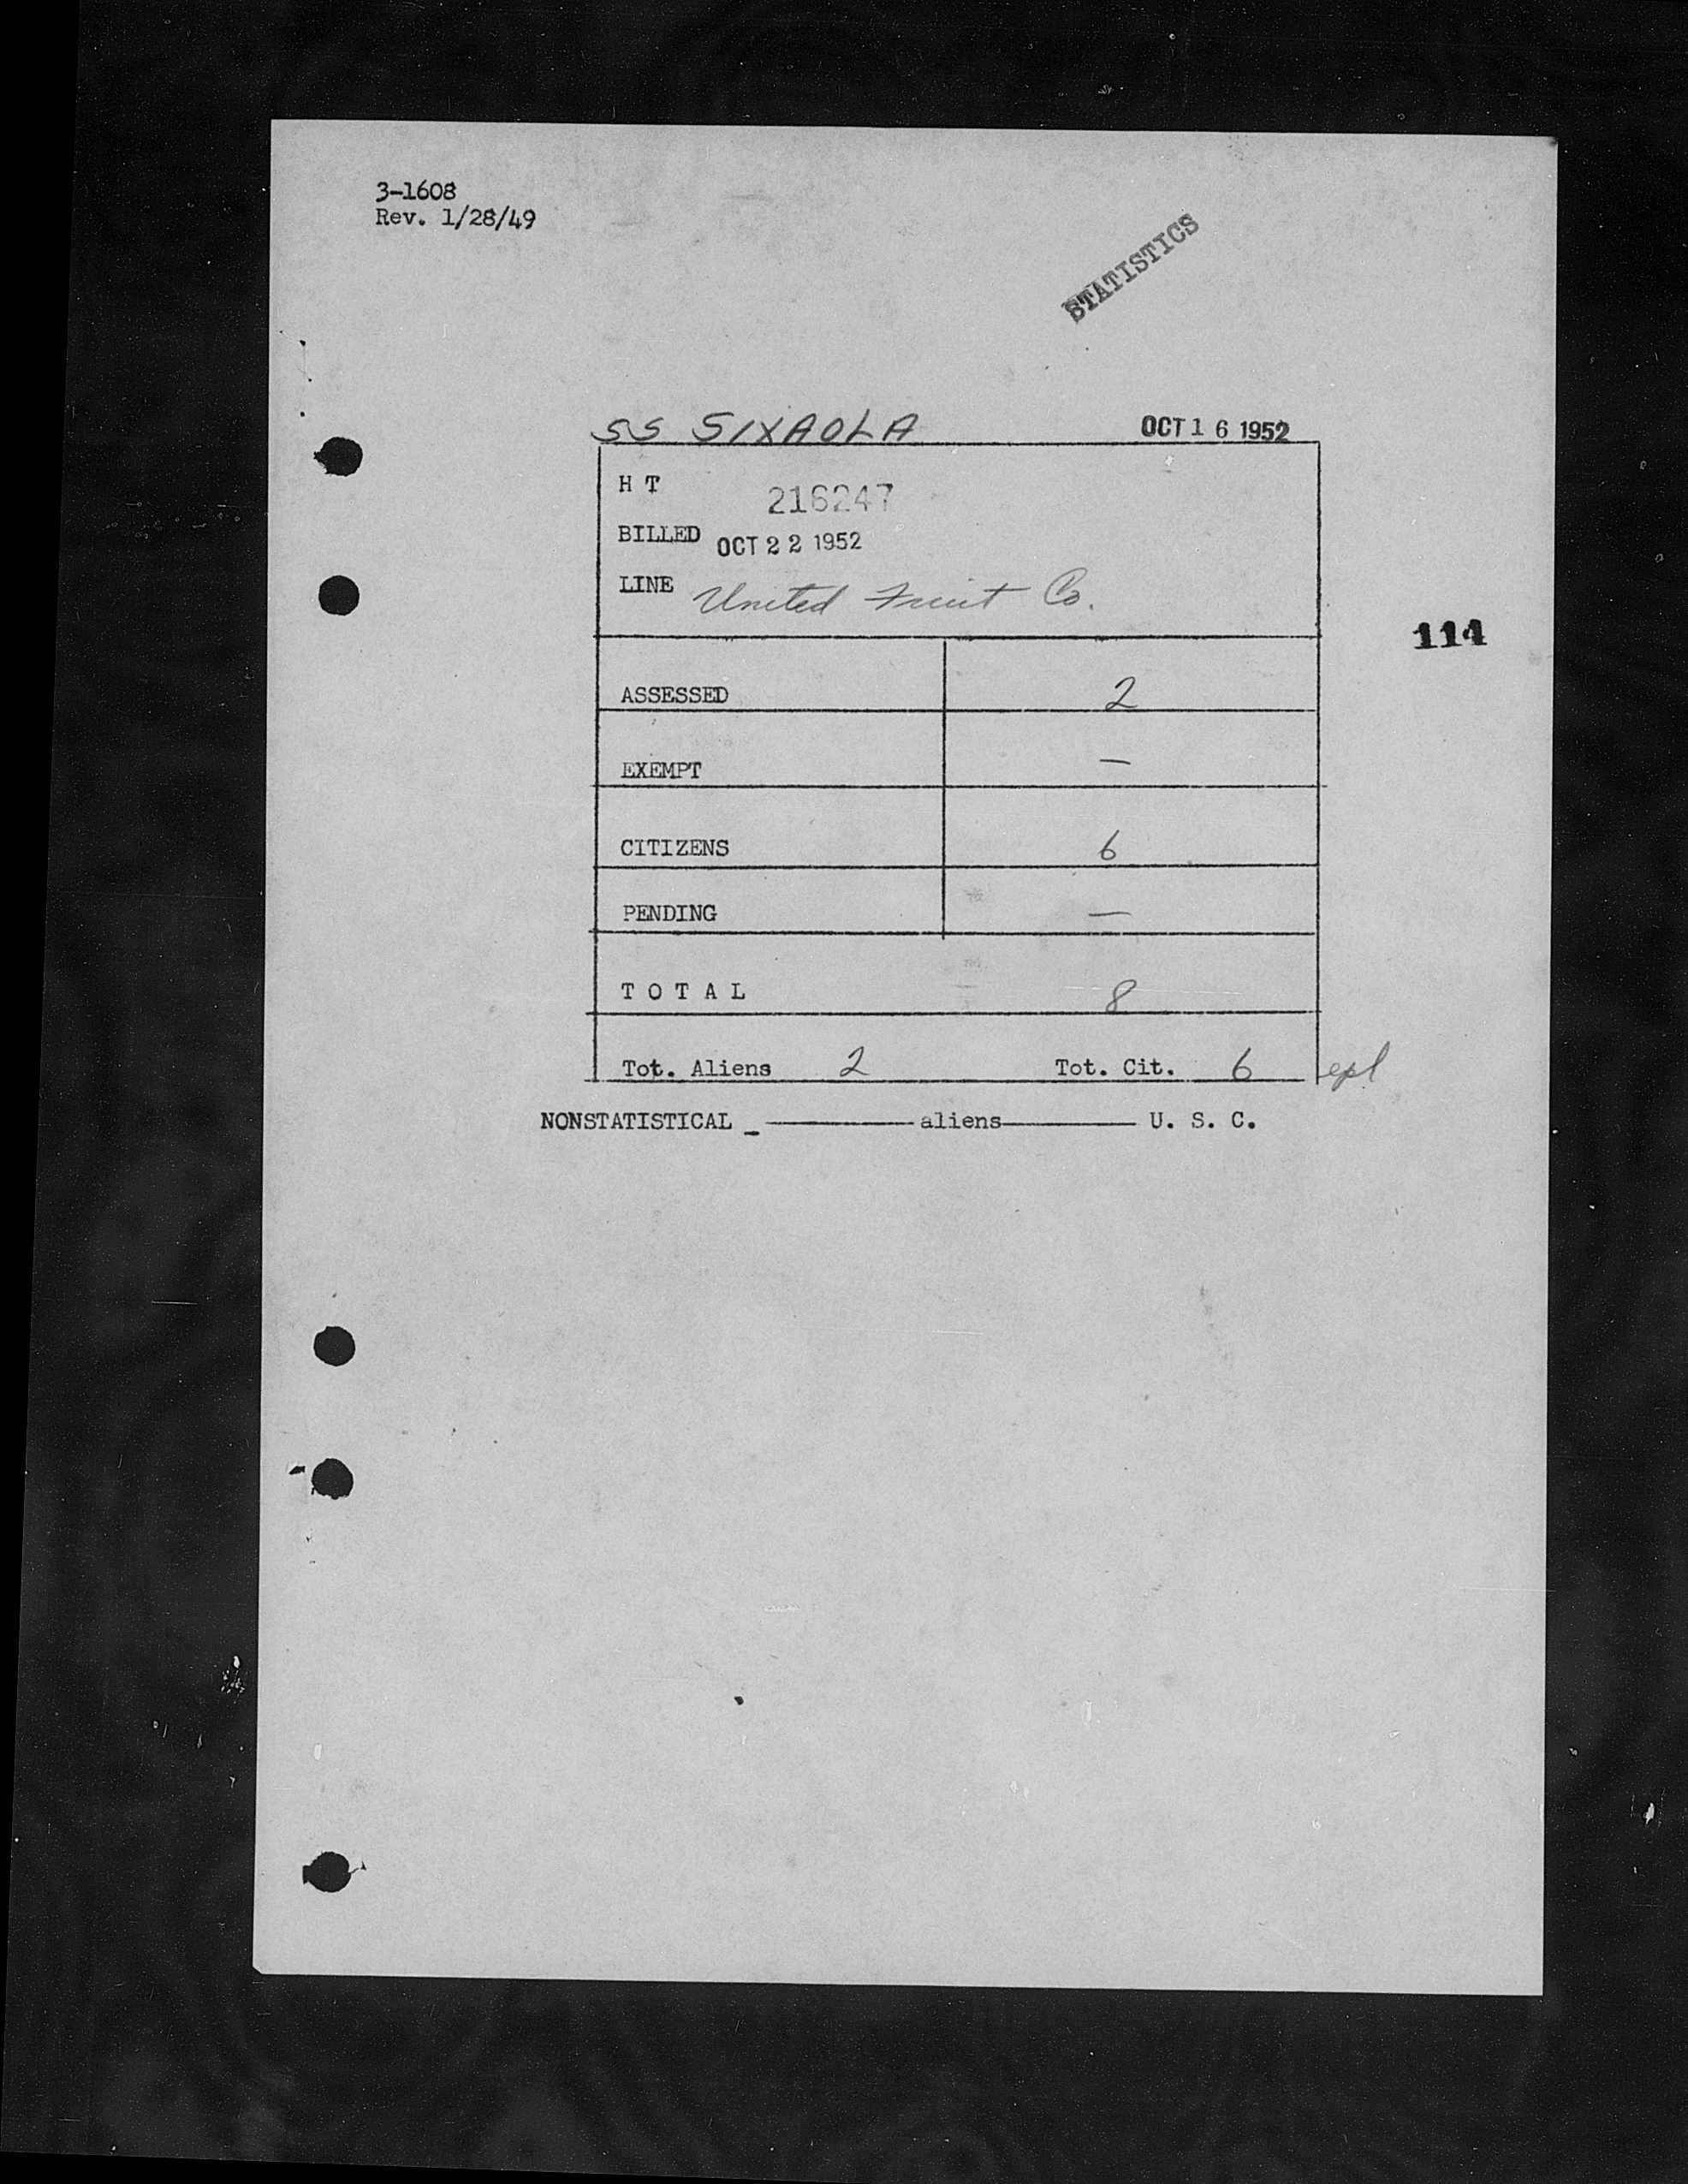 3-1608
Rev. 1/28/49
STATISTICS
SS SIXAOLA OCT 16 1952
H T 216247
BILLED OCT 22 1952
LINE United Fruit Co.
114
ASSESSED 2
EXEMPT —
CITIZENS 6
PENDING —
T O T A L 8
Tot. Aliens 2 Tot. Cit. 6 epl
NONSTATISTICAL _ ———— aliens ———— U. S. C.